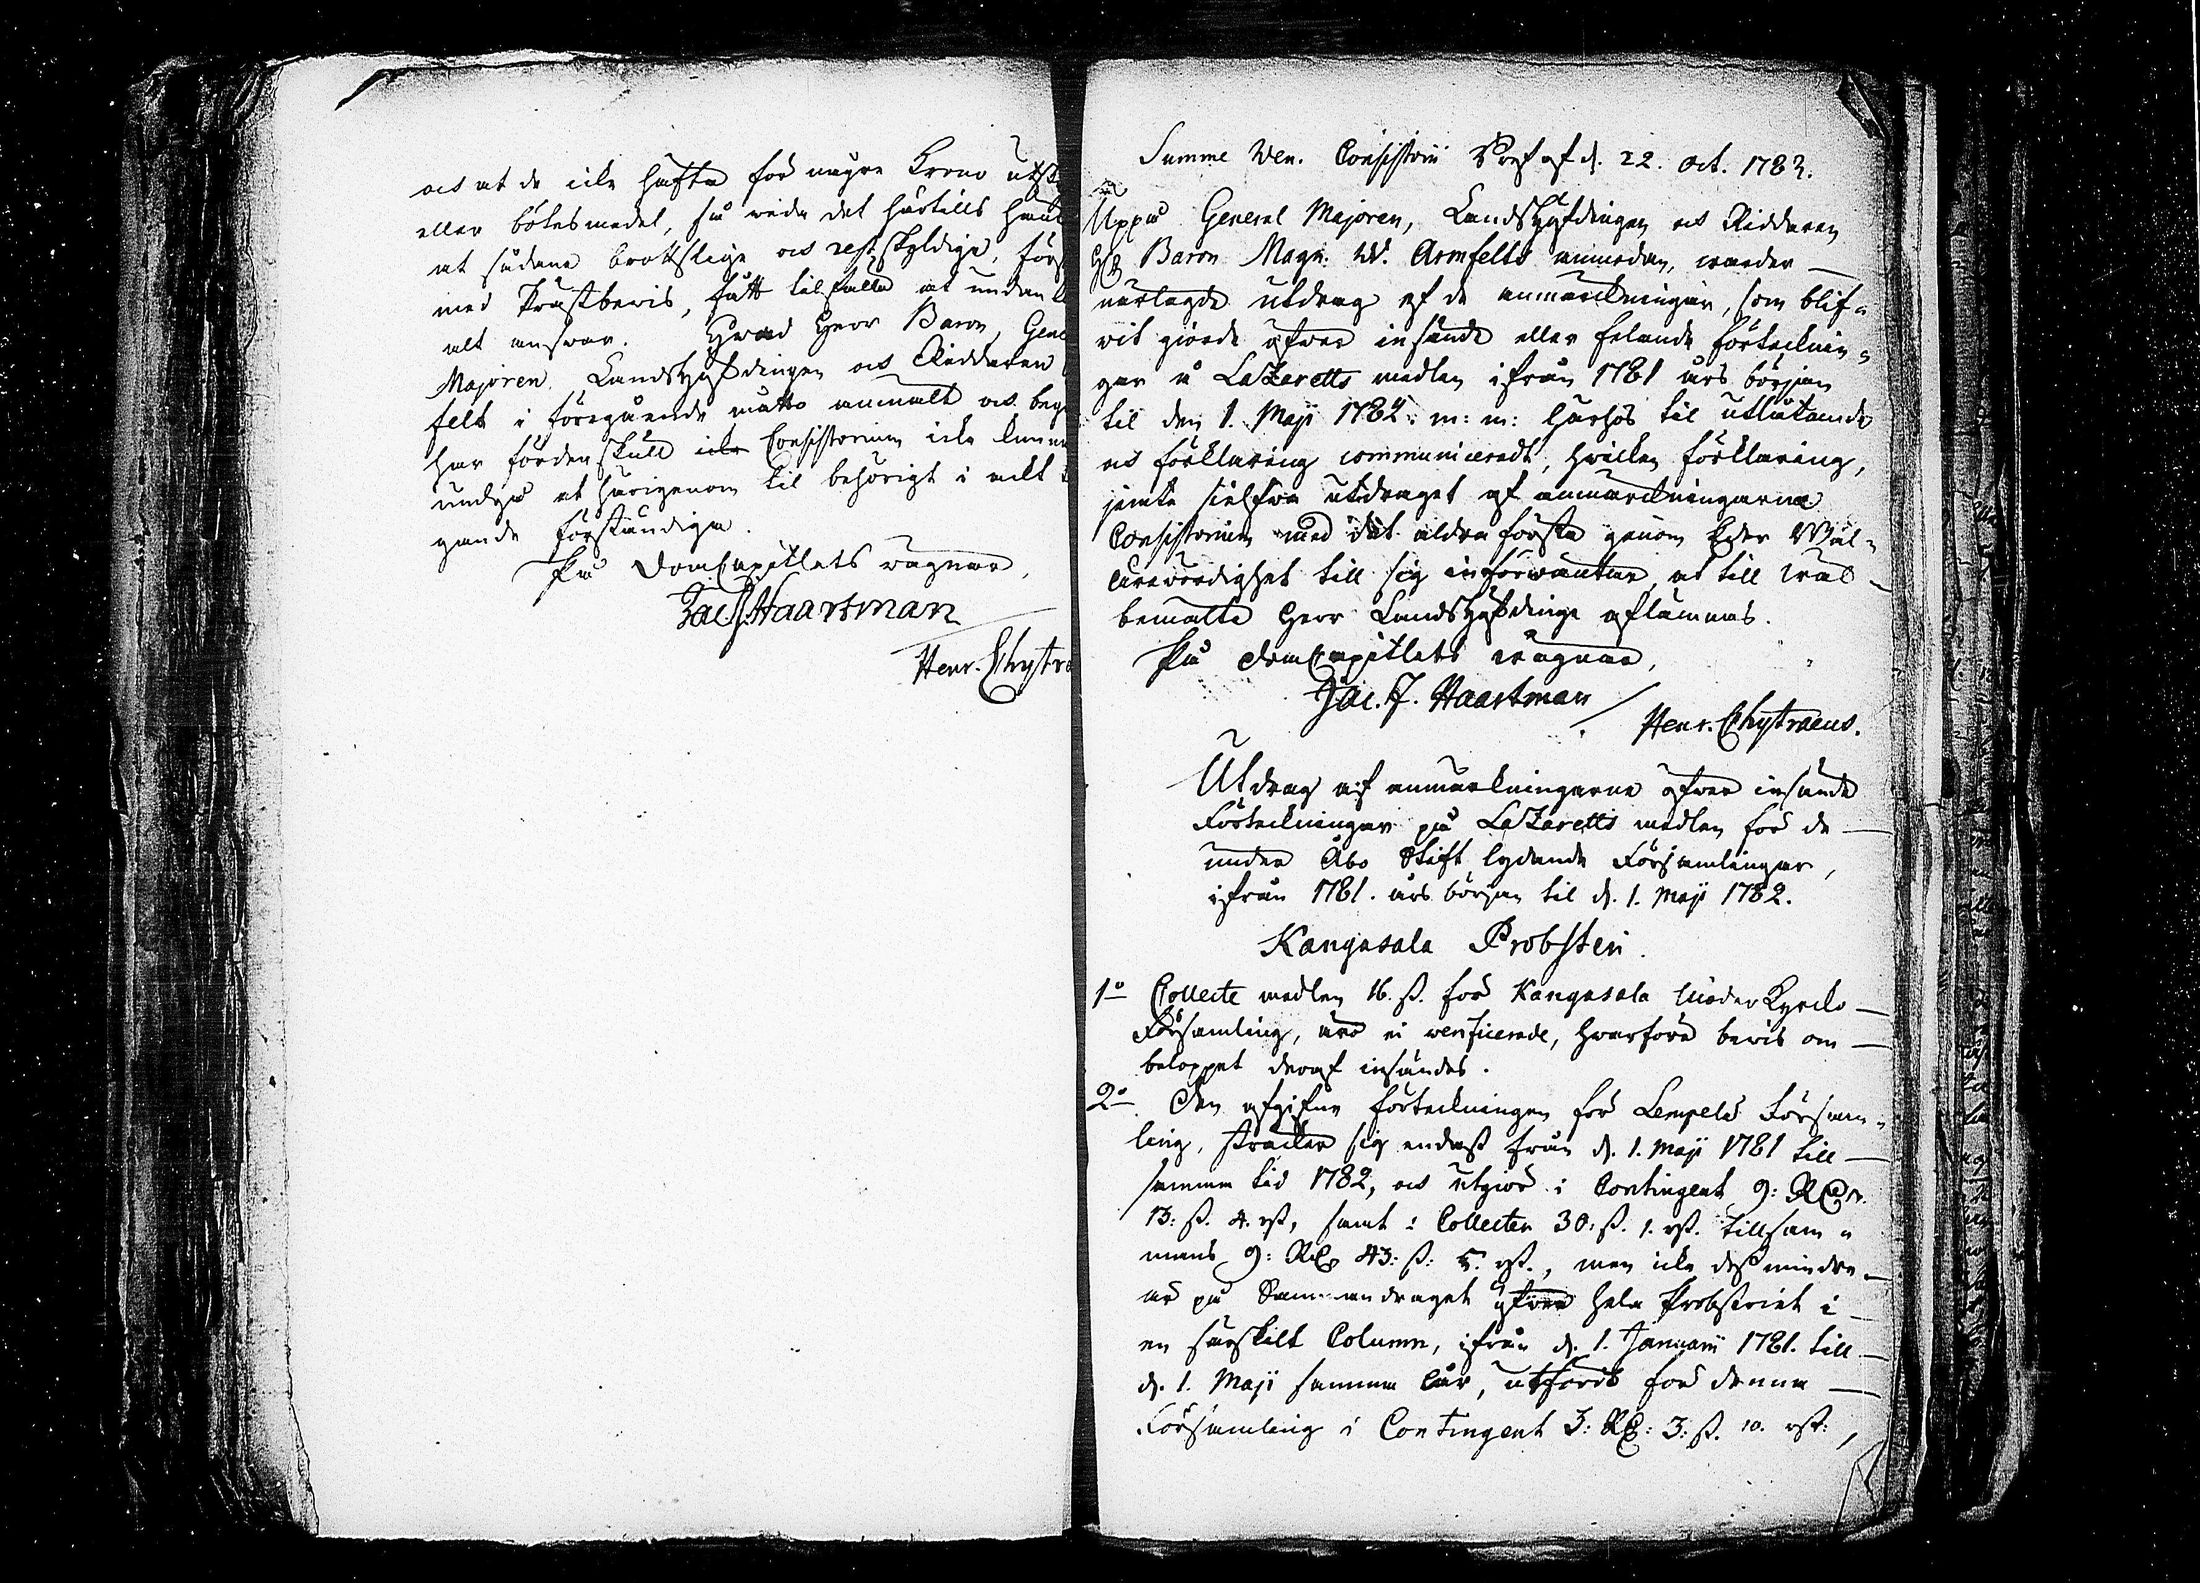 och at de icke häfta för några Krono utsk
eller bötesmedel, så wida det härtills händ
at sådane brottslige och rest skyldige, förs
med Prästbevis, fått tilfälle at undan
alt answar. Hwad Herr Baron, Gene
Majoren, Landshöfdingen och Riddaren
felt i föregående måtto anmält och beg
har fördenskull icke Consistorium icke kunna
undgå at härigenom til behörigt i akt
gande förständiga.
På DomCapitlets wägnar,
Jac. J. Haartman
Henr. Chytra
Samme Ven. Consistorii Bref af d. 22. Oct. 1783.
Uppå General Majoren, Landshöfdingen och Riddaren
Högwälb. Baron Magn. W. Armfelts anmodan, warder
närlagde utdrag af de anmärkningar, som blif-
wit giorde öfwer insände eller felande förtecknin-
gar å Lazaretts medlen ifrån 1781 års början
til den 1. Maji 1782. m: m: härhos til utlåtande
och förklaring communiceradt, hwilken förklaring,
jemte sielfwa utdraget af anmärkningarne
Consistorium med det aldraförsta genom Eder Wäl-
ärewördighet till sig införwäntar, at till wäl-
bemälte Herr Landshöfdinge aflämnas.
På DomCapitlets wägnar,
Jac. J. Haartman
Henr. Chytraeus.
Utdrag af anmärkningarne öfwer insände
Förteckningar på Lazaretts medlen för de
under Åbo Stift lydande Församlingar,
ifrån 1781. års början til d. 1. Maji 1782.
Kangasala Probsteri.
1o Collecte medlen 16. ß. för Kangasala Moder Kyrcko
Församling, äro ei verificerade, hwarföre bewis om
beloppet deraf insändes.
2o. Den afgifne förteckningen för Lempelä Försam-
ling, sträcker sig endast från d. 1. Maji 1781 till
samma tid 1782, och utgiör i Contingent 9: Rdr.
13: ß. 4. rst, samt i Collecter 30: ß. 1. rst. tillsam-
mans 9: Rdr 43: ß: 5. rst., men icke desmindre
är på Sammandraget öfwer hela Probsteriet i
en särskilt Column, ifrån d. 1. Januarii 1781. till
d. 1. Maji samma år, utfördt för denna
Församling i Contingent 3: Rdr: 3: ß. 10. rst:,